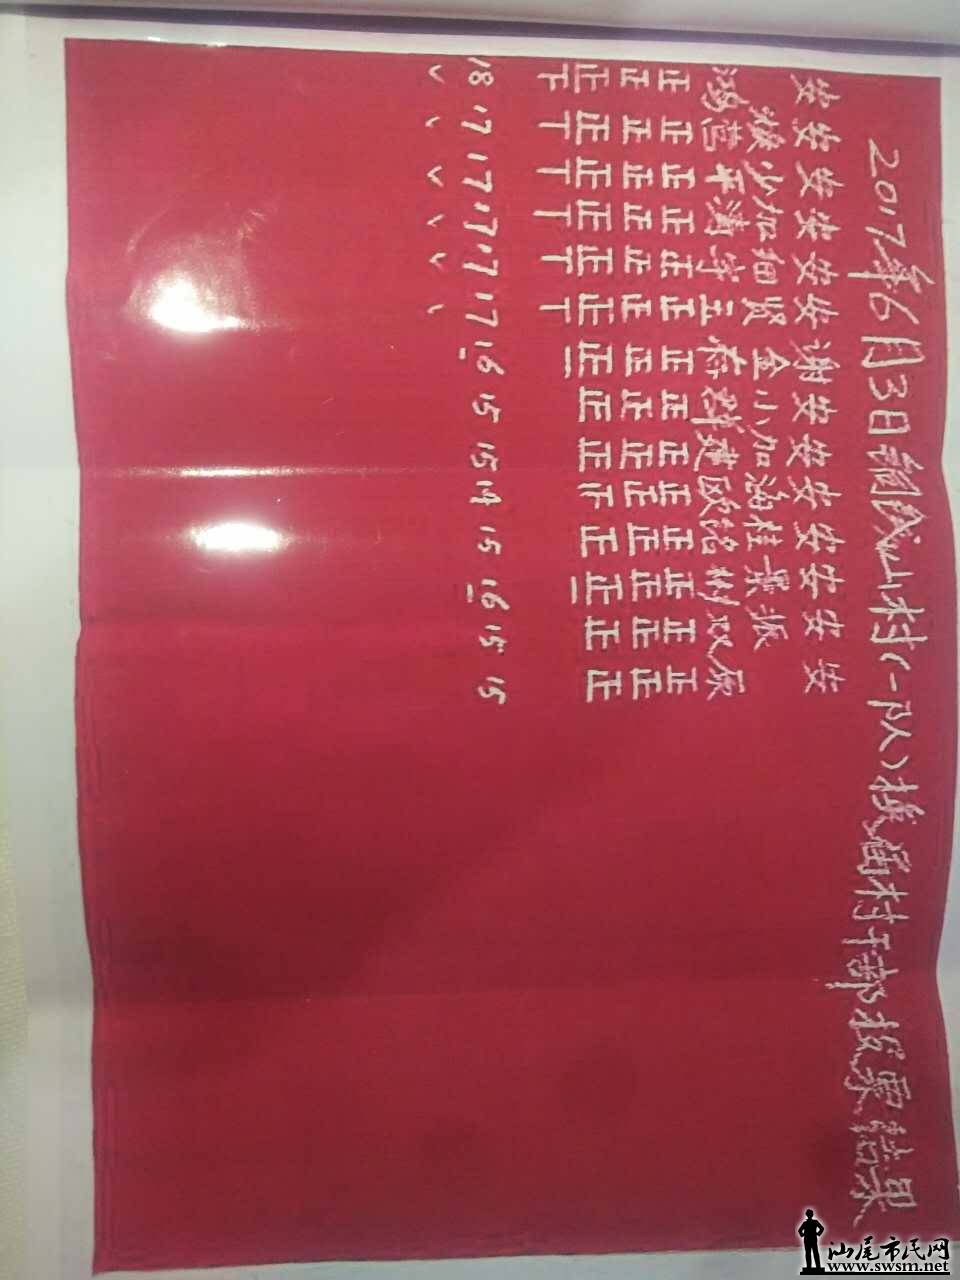 2017年6月3日铜成山村(一队)换届村干部投票结果
安鸿 正正正下 18 √
安 正正正丅 17 √
安少平 正正正丅 17 √
安加涛 正正正丅 17 √
安细宇 正正正丅 17 √
安贤立 正正正丅 17 √
谢金 正正正一 16
安小群 正正正 15
安加建 正正正 15
安海欧 正正 14
安桂铭 正正正 15
安景树 正正正一 16
安振双 正正正 15
安乐 正正正 15
汕尾市民网
www.swsm.net